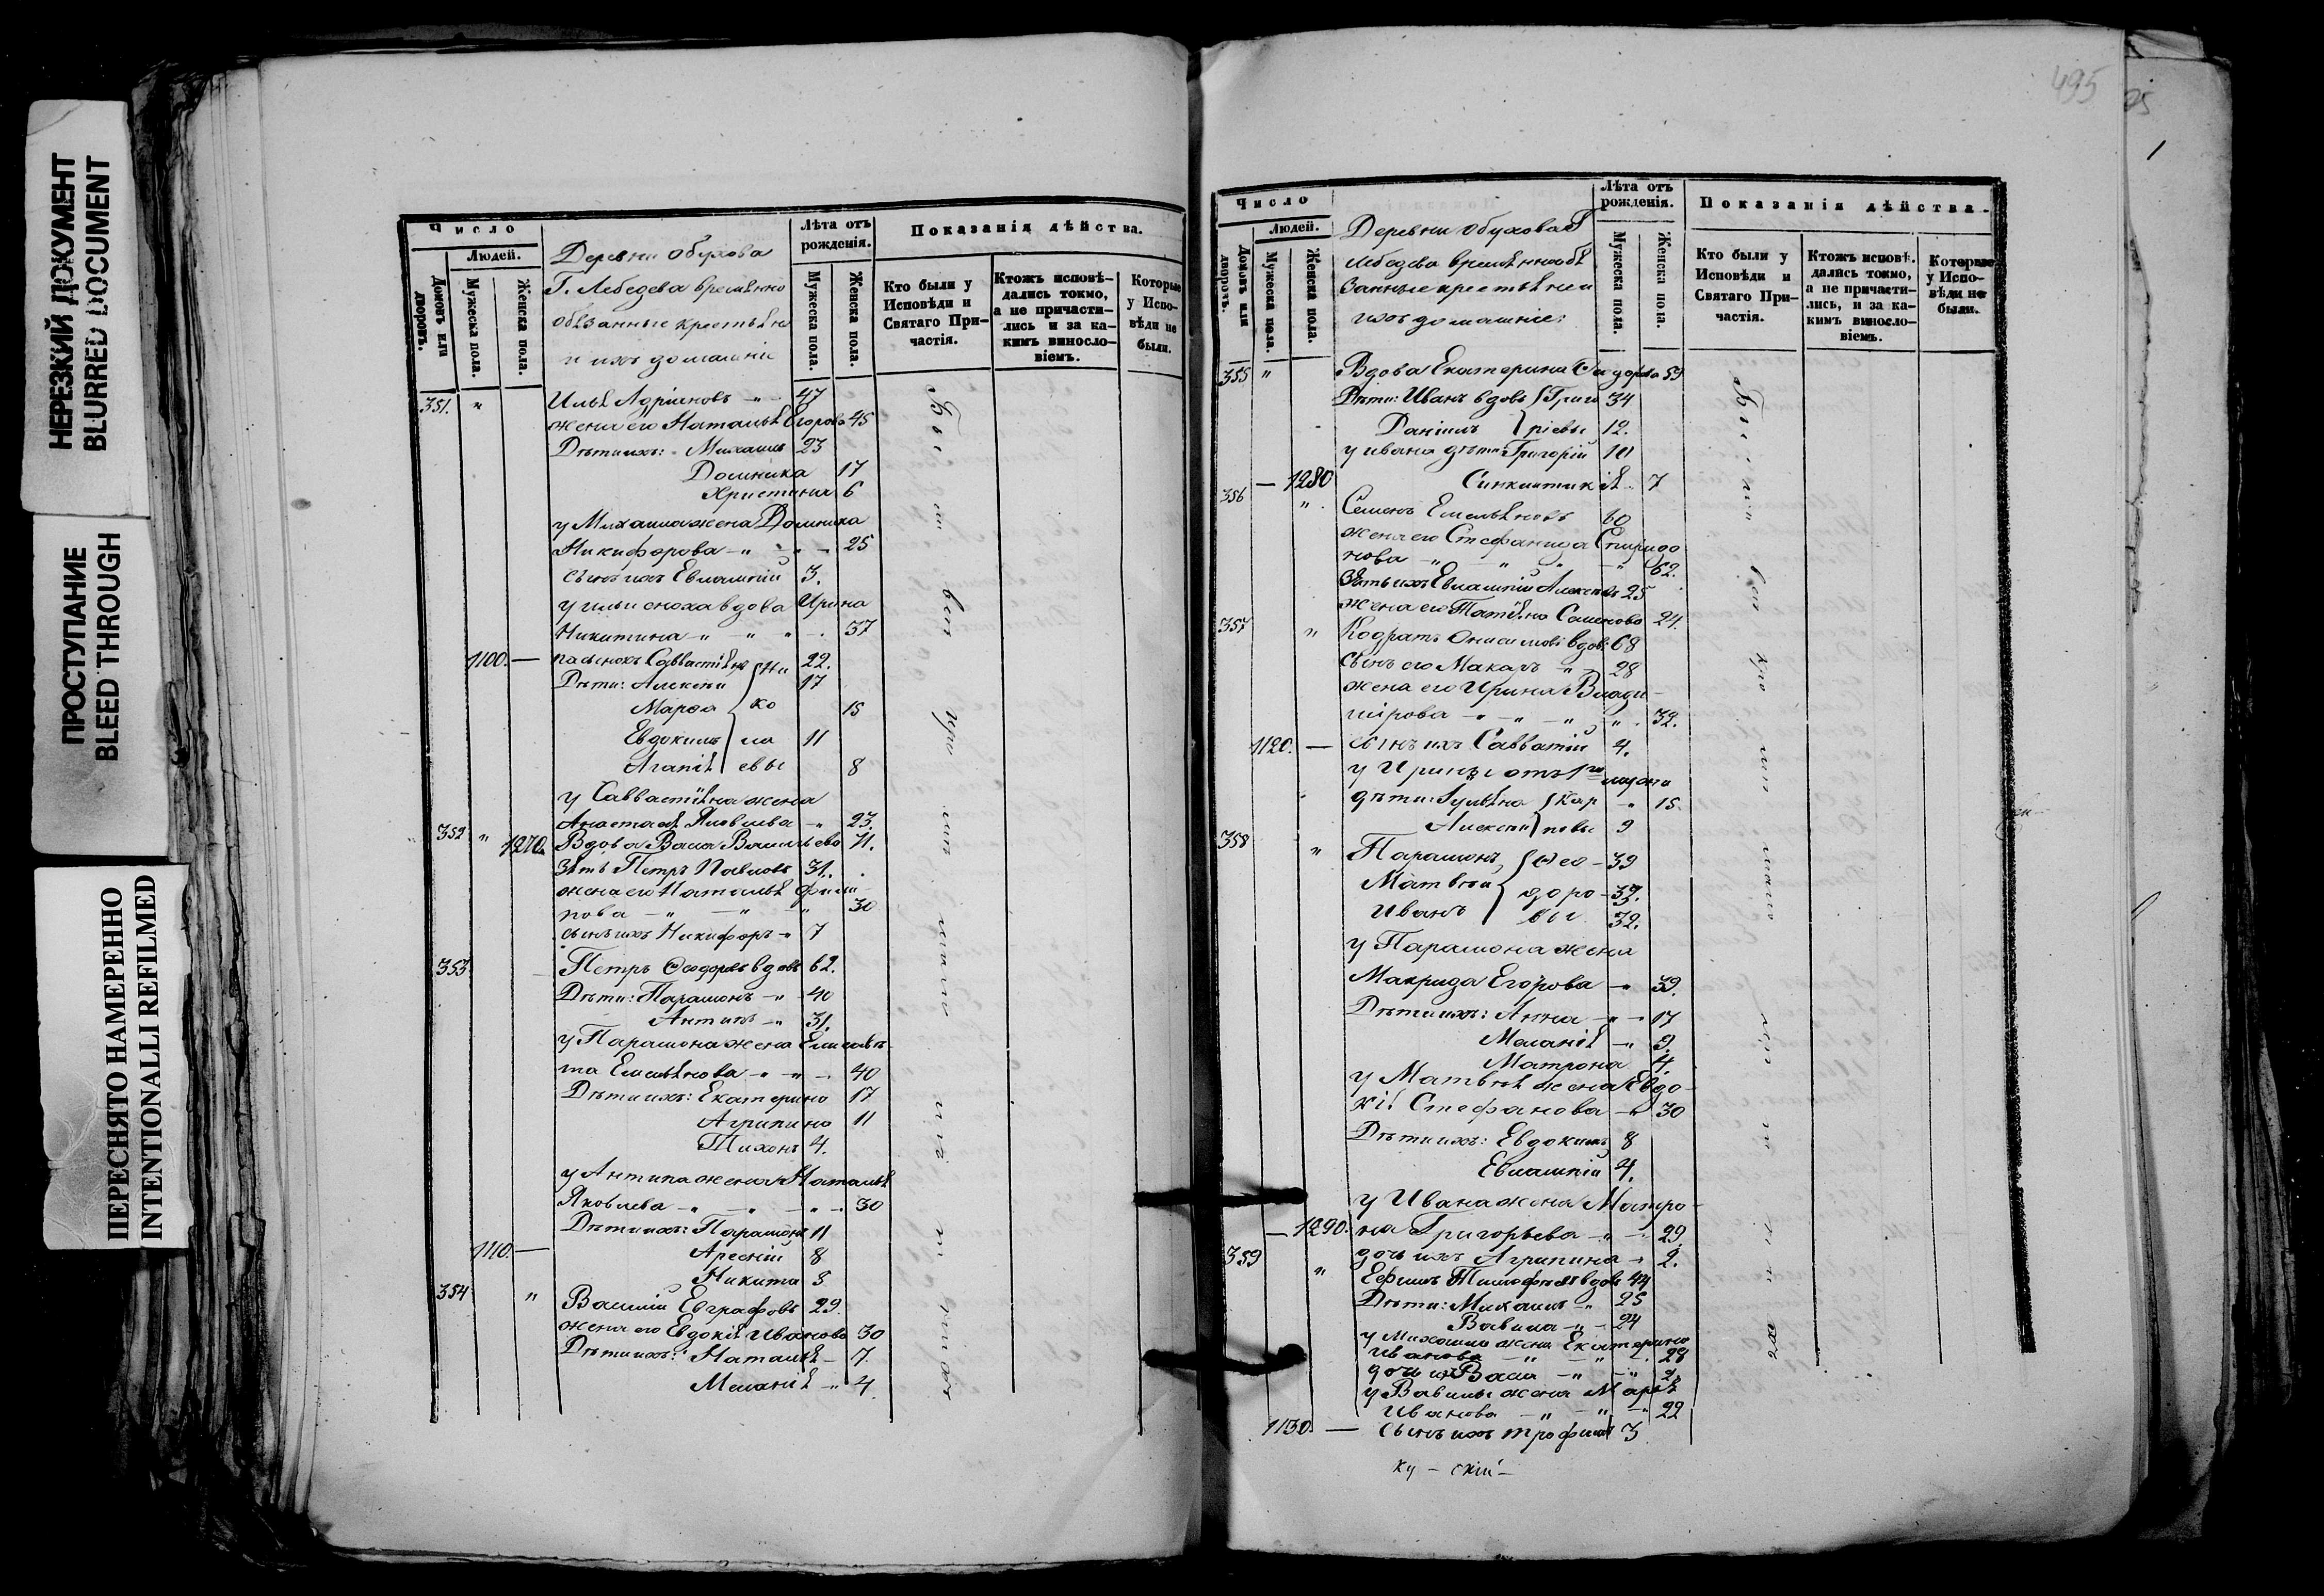 НЕРЕЗКИЙ ДОКУМЕНТ
BLURRED DOCUMENT
ПРОСТУПАНИЕ
BLEED THROUGH
ПЕРЕСНЯТО НАМЕРЕННО
INTENTIONALLI REFILMED
Число
Людей.
Домовъ или дворовъ.
Мужеска пола.
Женска пола.
Деревни Обухова
Г. Лебедева временно
обязанные крестьяне
и ихъ домашніе
Лѣта отъ рожденія.
Мужеска пола.
Женска пола.
Показанія дѣйства.
Кто были у Исповѣди и Святаго Причастія.
Ктожъ исповѣдались токмо, а не причастились, и за какимъ винословіемъ.
Которые у Исповѣди не были.
351. " Илья Адріановъ - " - 47
жена его Наталья Егорова 45
Дѣти ихъ: Михаилъ 23
Домника 17
Христина 6
у Михаила жена Домника
Никифорова - " - " - 25
сынъ ихъ Евлампій 3.
у Ильи сноха вдова Ирина
Никитина - " - " - 37
1100. — пасынокъ Савватѣй 22.
Дѣти: Алексѣй 17
Марѳа 15
Евдокимъ 11
Агапія 8
Ни
ко
ла
евы
у Савватѣя жена
Анастасія Яковлева - " 23.
352 " 1270. Вдова Васса Васильева 71.
Зять Петръ Павловъ 31.
жена его Наталья Филип-
пова - " - " - " 30
сынъ ихъ Никифоръ - " 7
353. Петръ Ѳеодоровъ вдовъ 62.
Дѣти: Парамонъ - " - 40
Антипъ - " 31.
у Парамона жена Елисаве-
та Емельянова - " - " - 40
Дѣти ихъ: Екатерина 17
Агрипина 11
Тихонъ 4.
у Антипа жена Наталья
Яковлева - " - " - " - 30
Дѣти ихъ: Парамонъ 11
1110. — Арсеній 8
Никита 3
354 " Василій Евграфовъ 29.
жена его Евдокія Иванова 30
Дѣти ихъ: Наталья - 7.
Меланія - " 4.
495
Число
Людей.
Домовъ или дворовъ.
Мужеска пола.
Женска пола.
Деревни Обухова Г
Лебедева временнообя
занные крестьяне и
ихъ домашніе:
Лѣта отъ рожденія.
Мужеска пола.
Женска пола.
Показанія дѣйства.
Кто были у Исповѣди и Святаго Причастія.
Ктожъ исповѣдались токмо, а не причастились, и за какимъ винословіемъ.
Которые у Исповѣди не были.
355 " Вдова Екатерина Сидорова 59
Дѣти: Иванъ вдовъ Григо 34
Даніилъ ріевы 12.
у Ивана дѣти: Григорій 10
— 1280 Синклитикія - 7
356 " Семенъ Емельяновъ 60
жена его Стефанида Спиридо
нова - " - " - " 62.
Зять ихъ Евлампій 25
жена его Татьяна Семенова 24.
357 " Кодратъ Онисимовъ вдовъ 68
сынъ его Макаръ - " - 28
жена его Ирина Влади-
мірова - " - " - " 32.
1120. — сынъ ихъ Савватій 4.
у Ирины отъ 1го мужа
дѣти: Іуліана Кар - " 15.
Алексѣй повы 9
358 " Парамонъ Ѳео - 39
Матвѣй доро - 37.
Иванъ вы 32.
у Парамона жена
Макрида Егорова - " 39.
Дѣти ихъ: Анна - " - 17
Меланія - " 9.
Матрона 4.
у Матвѣя жена Евдо-
кія Стефанова - " 30
Дѣти ихъ: Евдокимъ 8
Евлампій 4.
у Ивана жена Матро-
— 1290. на Григорьева - " - 29.
дочь ихъ Агрипина - " 2.
359 " Ефимъ Тимофеевъ вдовъ 44
Дѣти: Михаилъ - " 25
Вавила - " - 24
у Михаила жена Екатерина
Иванова - " - " - 28
дочь ихъ Васса - " - " 2.
у Вавилы жена Марѳа
Иванова - " - " - " 22
1130. — сынъ ихъ Трофимъ 3
ку - скій -